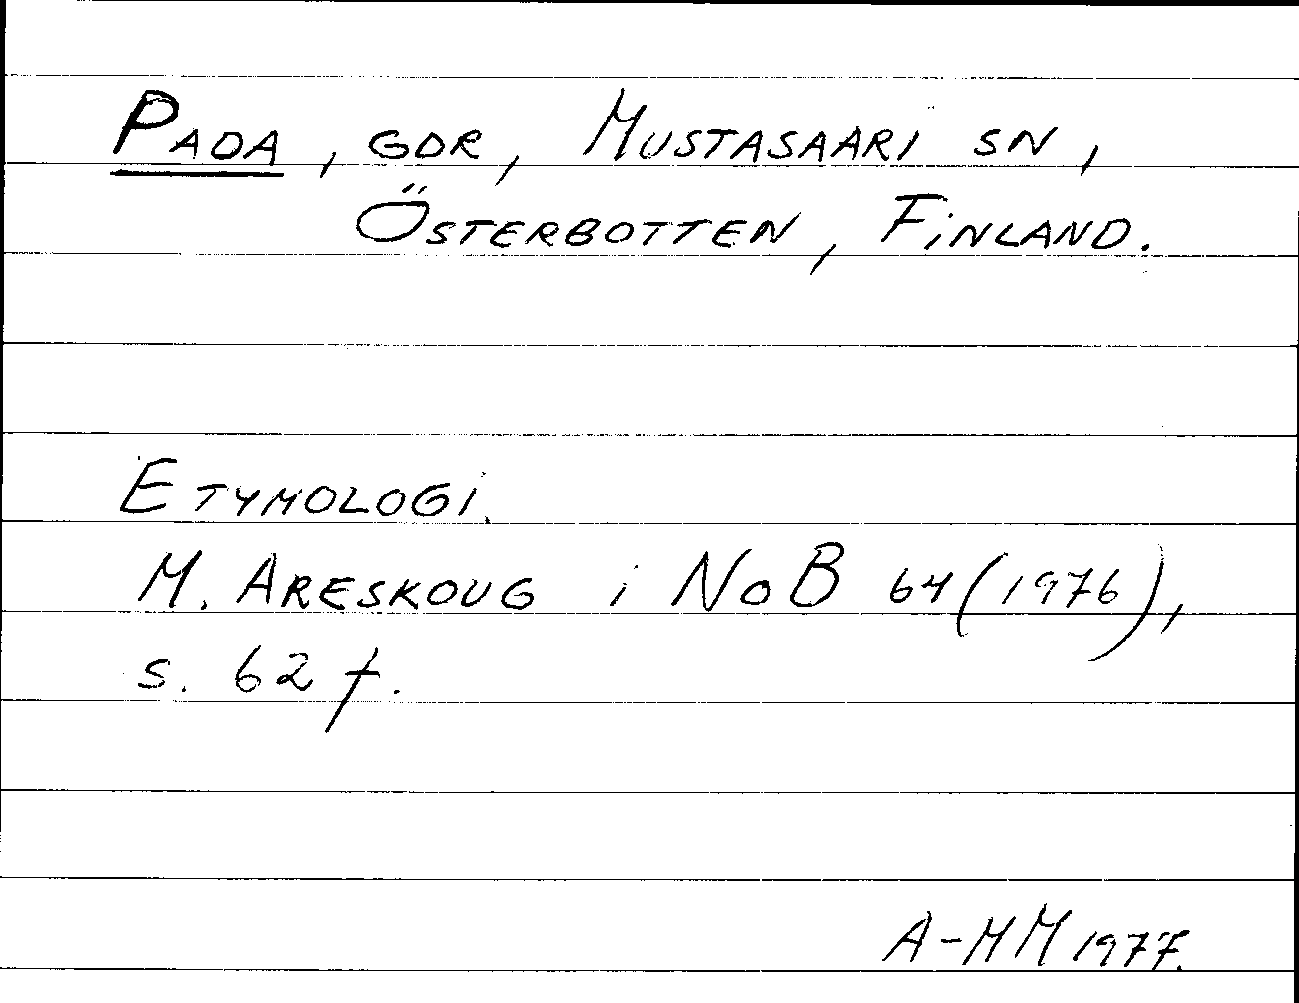 PADA, GDR, MUSTASAARI SN,
ÖSTERBOTTEN, FINLAND.
ETYMOLOGI.
M. ARESKOUG i NoB 64 (1976),
s. 62 f.
A-MM 1977.